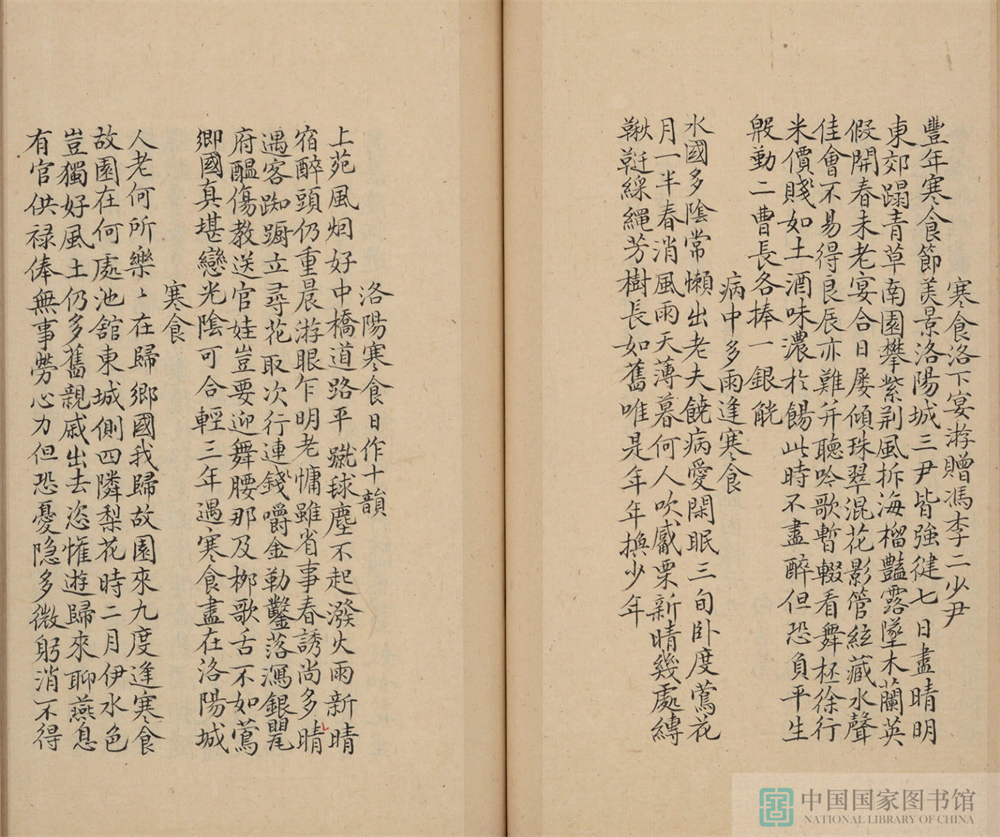 寒食洛下宴游贈馮李二少尹
豐年寒食節美景洛陽城三尹皆強健七日盡晴明
東郊蹋青草南園攀紫荆風拆海榴豔露墜木蘭英
假開春未老宴合日屡傾珠翠混花影管絃藏水聲
佳會不易得良辰亦難并聽吟歌暫輟看舞柸徐行
米價賤如土酒味濃於餳此時不盡醉但恐負平生
殷勤二曹長各捧一銀觥
病中多雨逢寒食
水國多陰常懶出老夫饒病愛閑眠三旬卧度鶯花
月一半春消風雨天薄暮何人吹觱栗新晴幾處縛
鞦韆綵繩芳樹長如舊唯是年年換少年
洛陽寒食日作十韻
上苑風烟好中橋道路平蹴毬塵不起潑火雨新晴
宿醉頭仍重晨游眼乍明老慵雖省事春誘尚多晴
遇客踟蹰立尋花取次行連錢嚼金勒鑿落瀉銀甖
府醖傷教送官娃豈要迎舞腰那及栁歌舌不如鶯
鄉國真堪戀光陰可合輕三年遇寒食盡在洛陽城
寒食
人老何所樂〻在歸鄉國我歸故園來九度逢寒食
故園在何處池舘東城側四隣梨花時二月伊水色
豈獨好風土仍多舊親戚出去恣懽遊歸來聊燕息
有官供禄俸無事勞心力但恐憂隐多微躬消不得
中国国家图书馆
NATIONAL LIBRARY OF CHINA